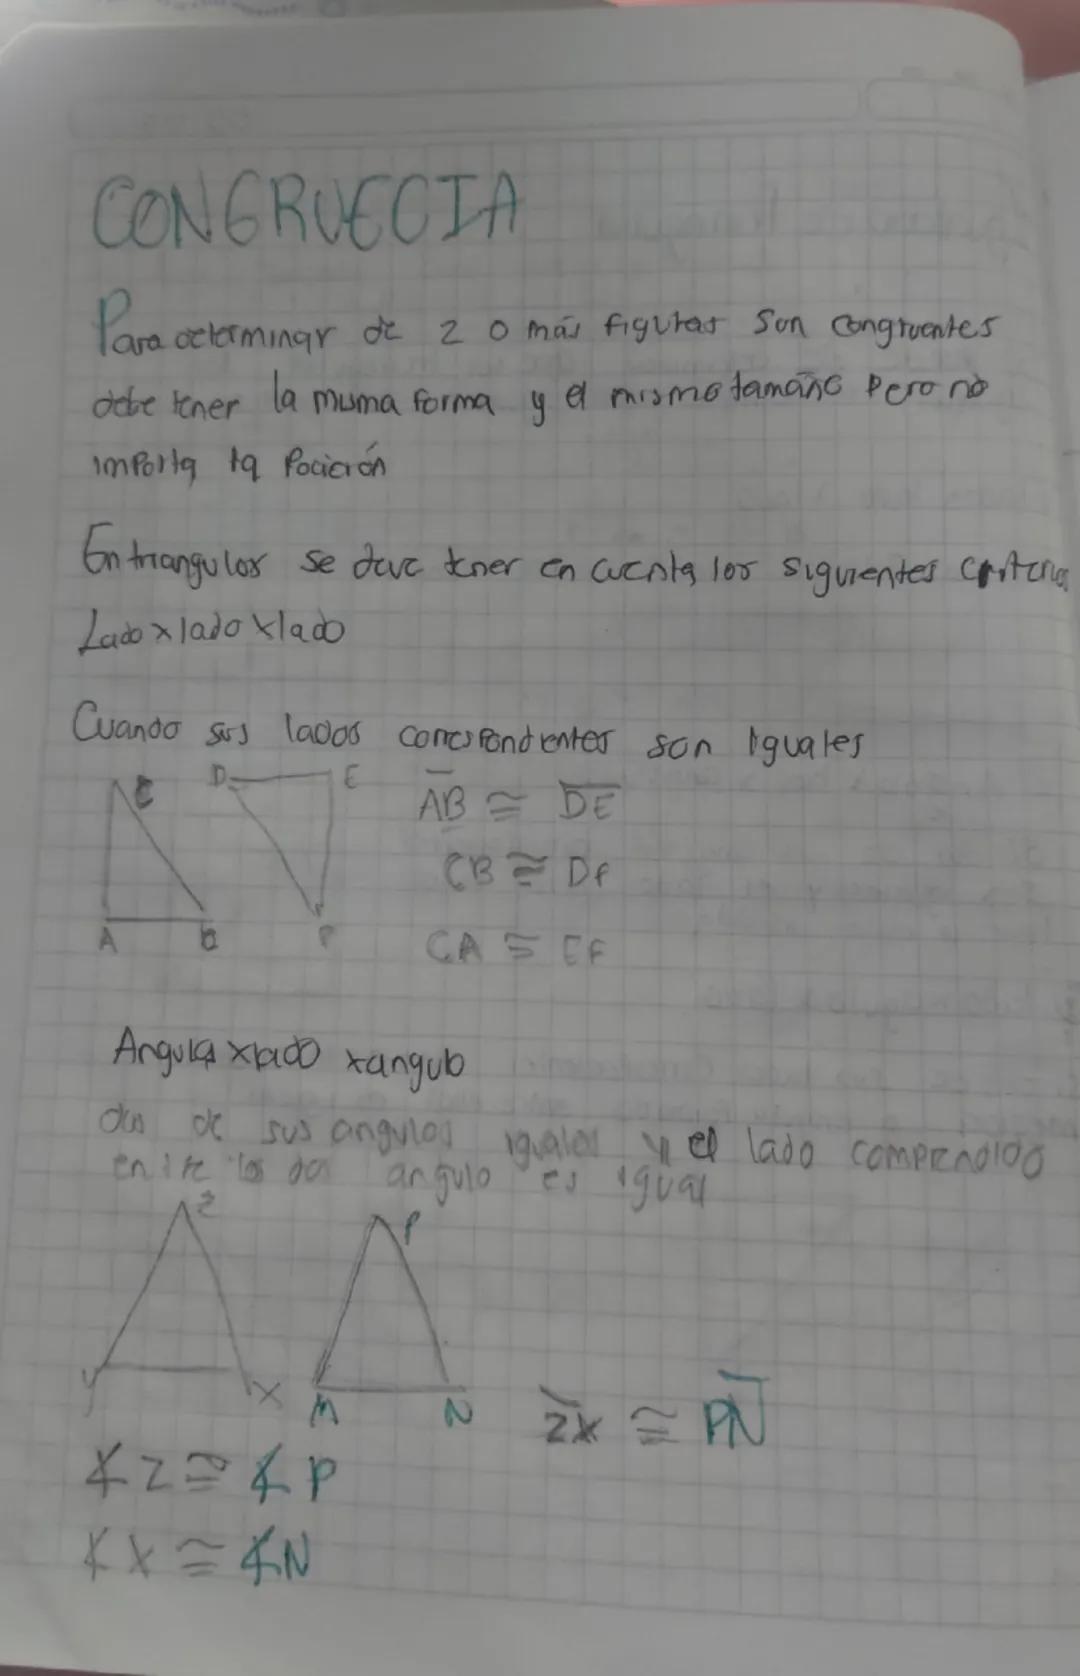 CONGRUECIA
Para determinar de 2 o más figuras son congruentes
debe tener la misma forma y el mismo tamaño Pero no
importa la Pocición
En triangulos se deve tener en cuenta los siguientes criterios
Lado x lado x lado
Cuando sus lados correspondientes son iguales
C D E AB ≅ DE
CB ≅ DF
A B F CA ≅ EF
Angulo x lado x angulo
dos de sus angulos iguales y el lado comprendido
entre los dos angulo es igual
Z P
Y X M N ZX ≅ PN
∡Z ≅ ∡P
∡X ≅ ∡N